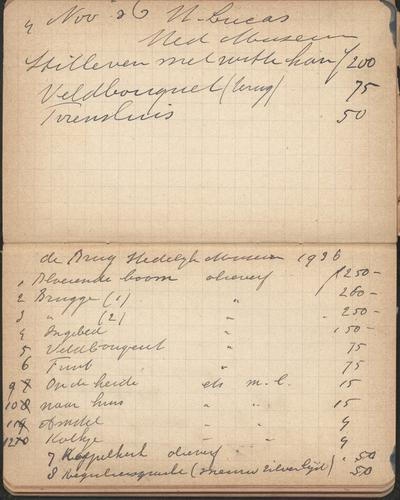 4 Nov 26 St. Lucas
Sted Museum
Stilleven met witte kan f 200
Veldbouquet (terug) 75
Torensluis 50
de Brug Stedelyk Museum 1926
1 Bloeiende boom olieverf f 250-
2 Brugge (1) " 260-
3 " (2) " 250-
4 Ingebed " 150-
5 Veldbouquet " 75
6 " 75
9 Op de heide ets m.l. 15
10 naar huis " " 15
11 Amstel " " 9
12 Kolkje - - 9
7 Koppelkerk olieverf " 50
8 Reguliersgracht ( zilvertijd) " 50